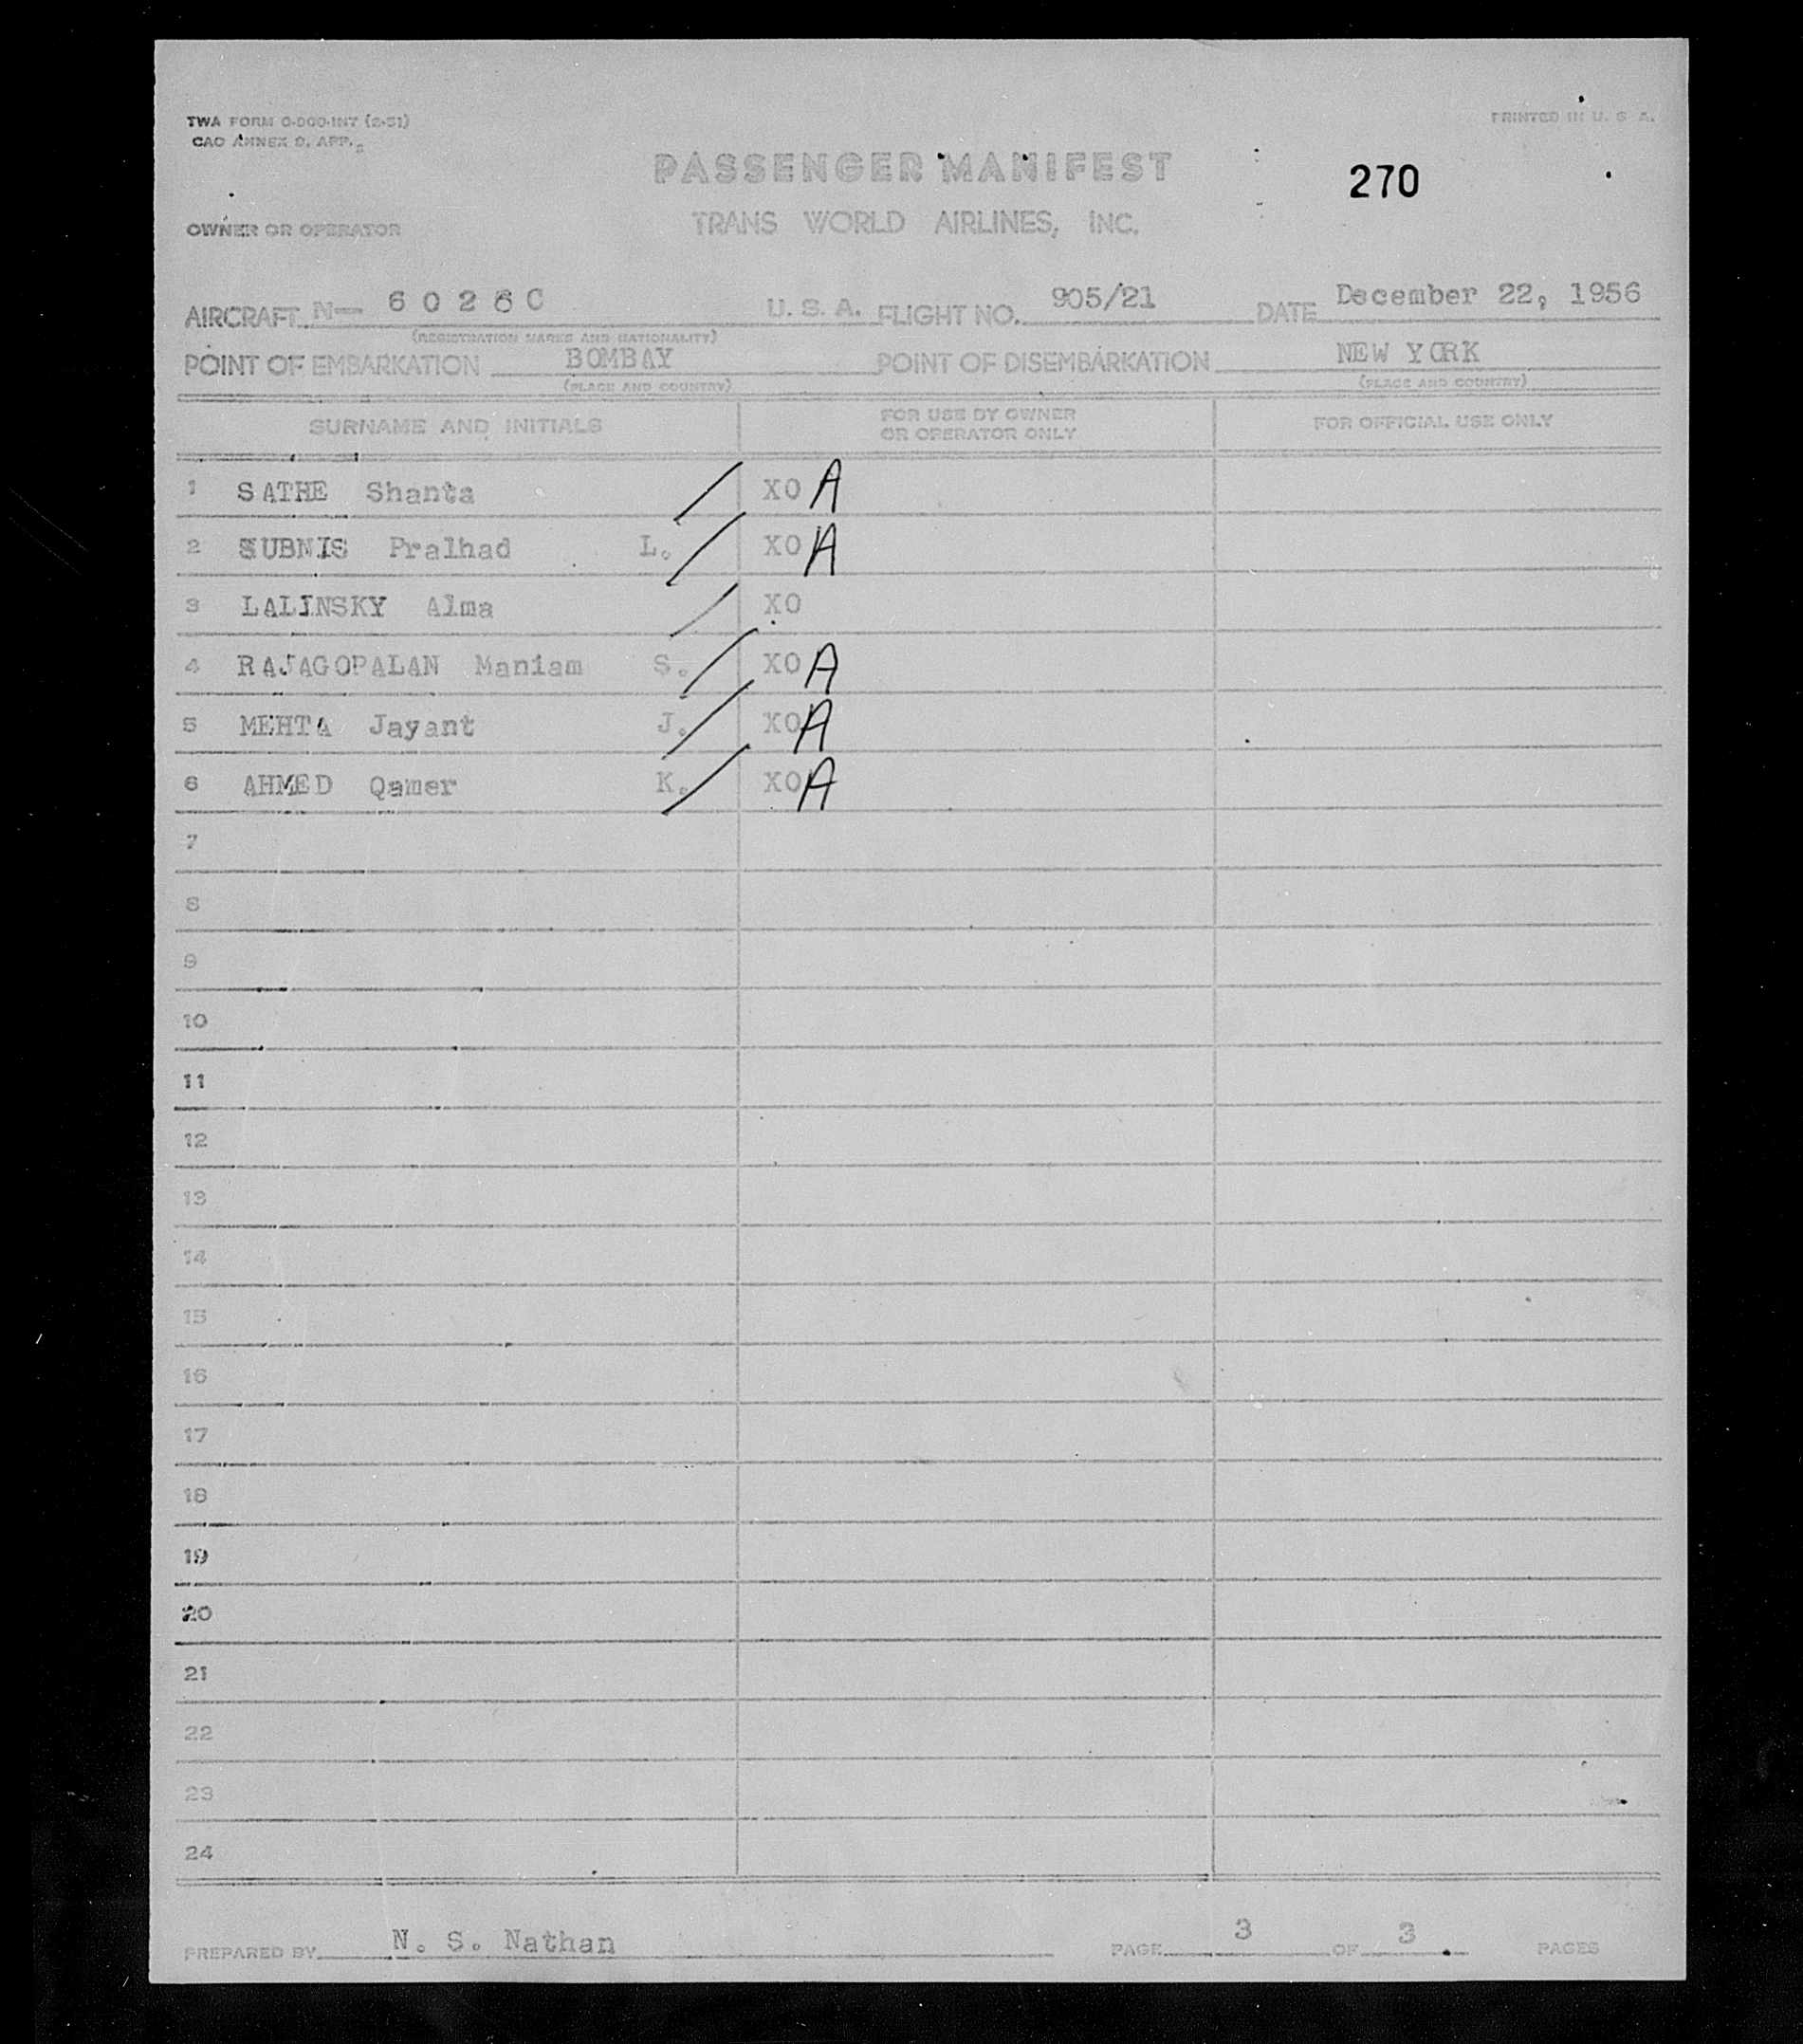 TWA FORM O-DOO-INT (2-51)
CAO ANNEX 9, APP. 2
PRINTED IN U. S. A.
PASSENGER MANIFEST
270
OWNER OR OPERATOR
TRANS WORLD AIRLINES, INC.
AIRCRAFT N— 6026C U. S. A. FLIGHT NO. 905/21 DATE December 22, 1956
(REGISTRATION MARKS AND NATIONALITY)
POINT OF EMBARKATION BOMBAY POINT OF DISEMBARKATION NEW YORK
(PLACE AND COUNTRY) (PLACE AND COUNTRY)
SURNAME AND INITIALS FOR USE BY OWNER OR OPERATOR ONLY FOR OFFICIAL USE ONLY
1 SATHE Shanta / XO A
2 SUBNIS Pralhad L. / XO A
3 LALINSKY Alma / XO
4 RAJAGOPALAN Maniam S. / XO A
5 MEHTA Jayant J. / XO A
6 AHMED Qamer K. / XO A
7
8
9
10
11
12
13
14
15
16
17
18
19
20
21
22
23
24
PREPARED BY N. S. Nathan PAGE 3 OF 3 PAGES